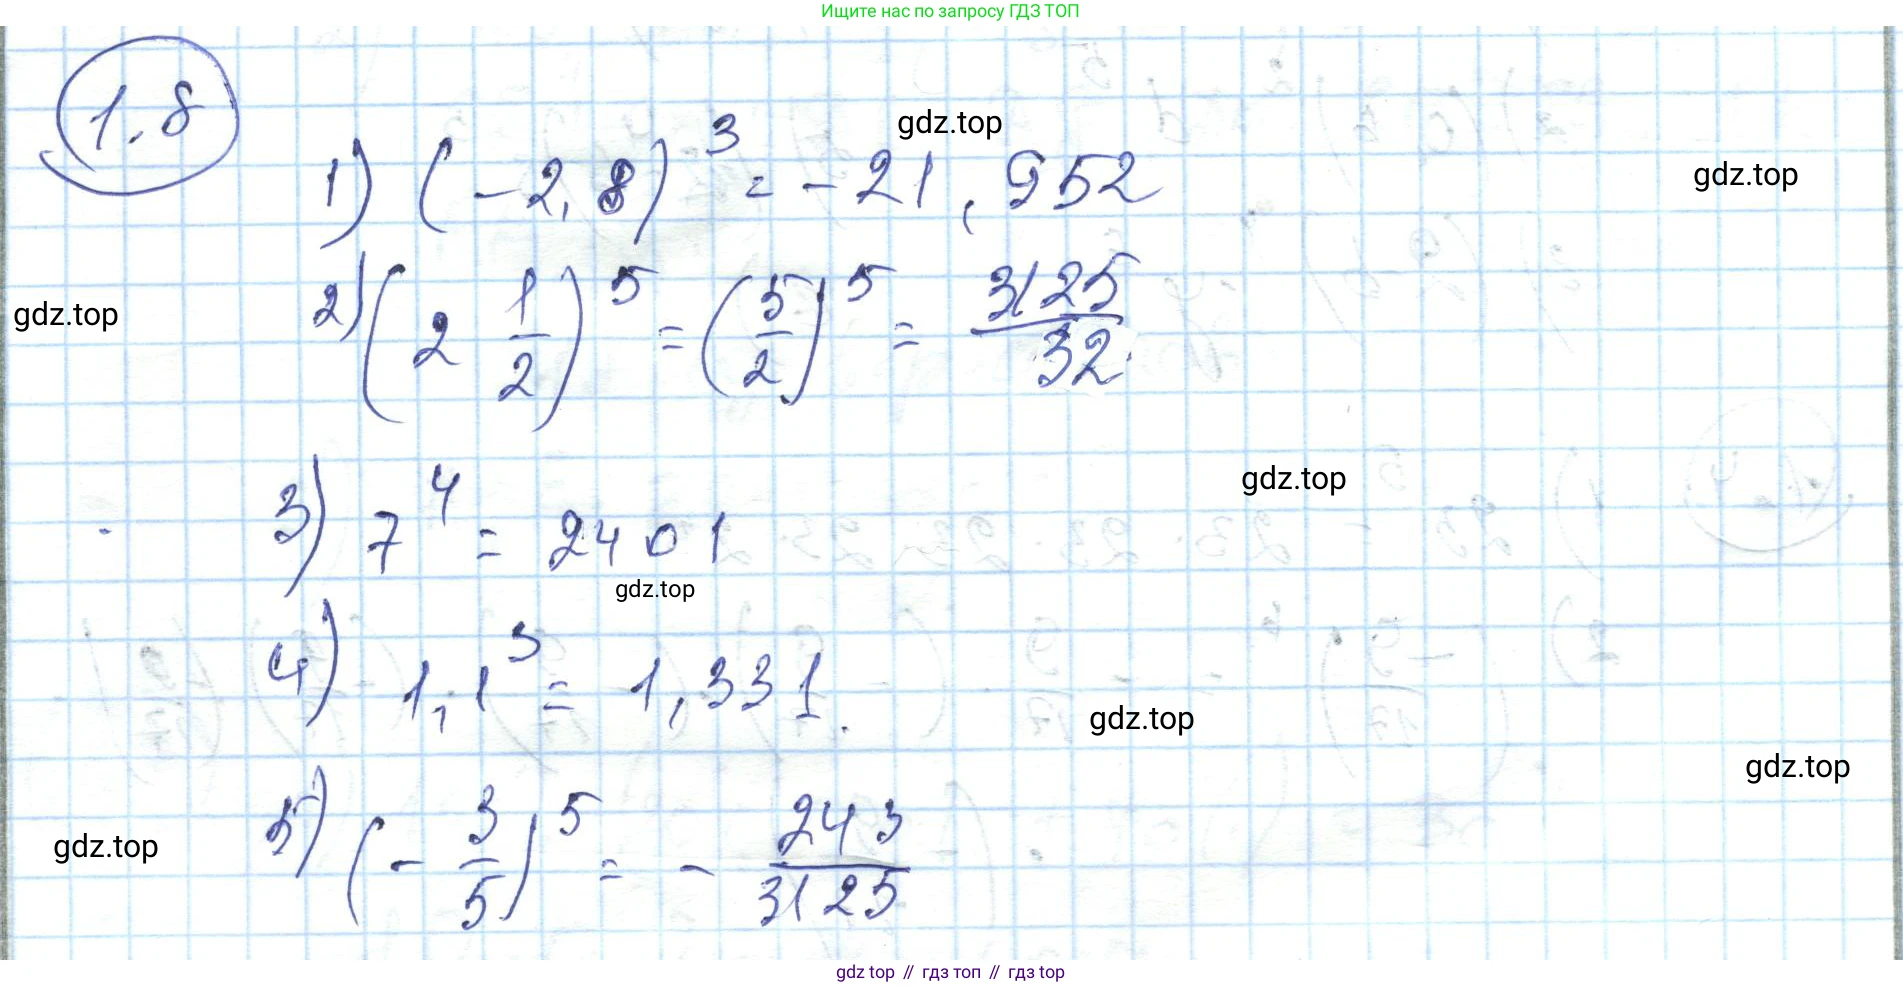 Ищите нас по запросу ГДЗ ТОП
1.8
gdz.top
1) (-2,8)³ = -21,952
gdz.top
gdz.top
2) (2 1/2)⁵ = (5/2)⁵ = 3125/32
gdz.top
3) 7⁴ = 2401
gdz.top
4) 1,1³ = 1,331.
gdz.top
gdz.top
5) (-3/5)⁵ = - 243/3125
gdz.top
gdz top // гдз топ // гдз top